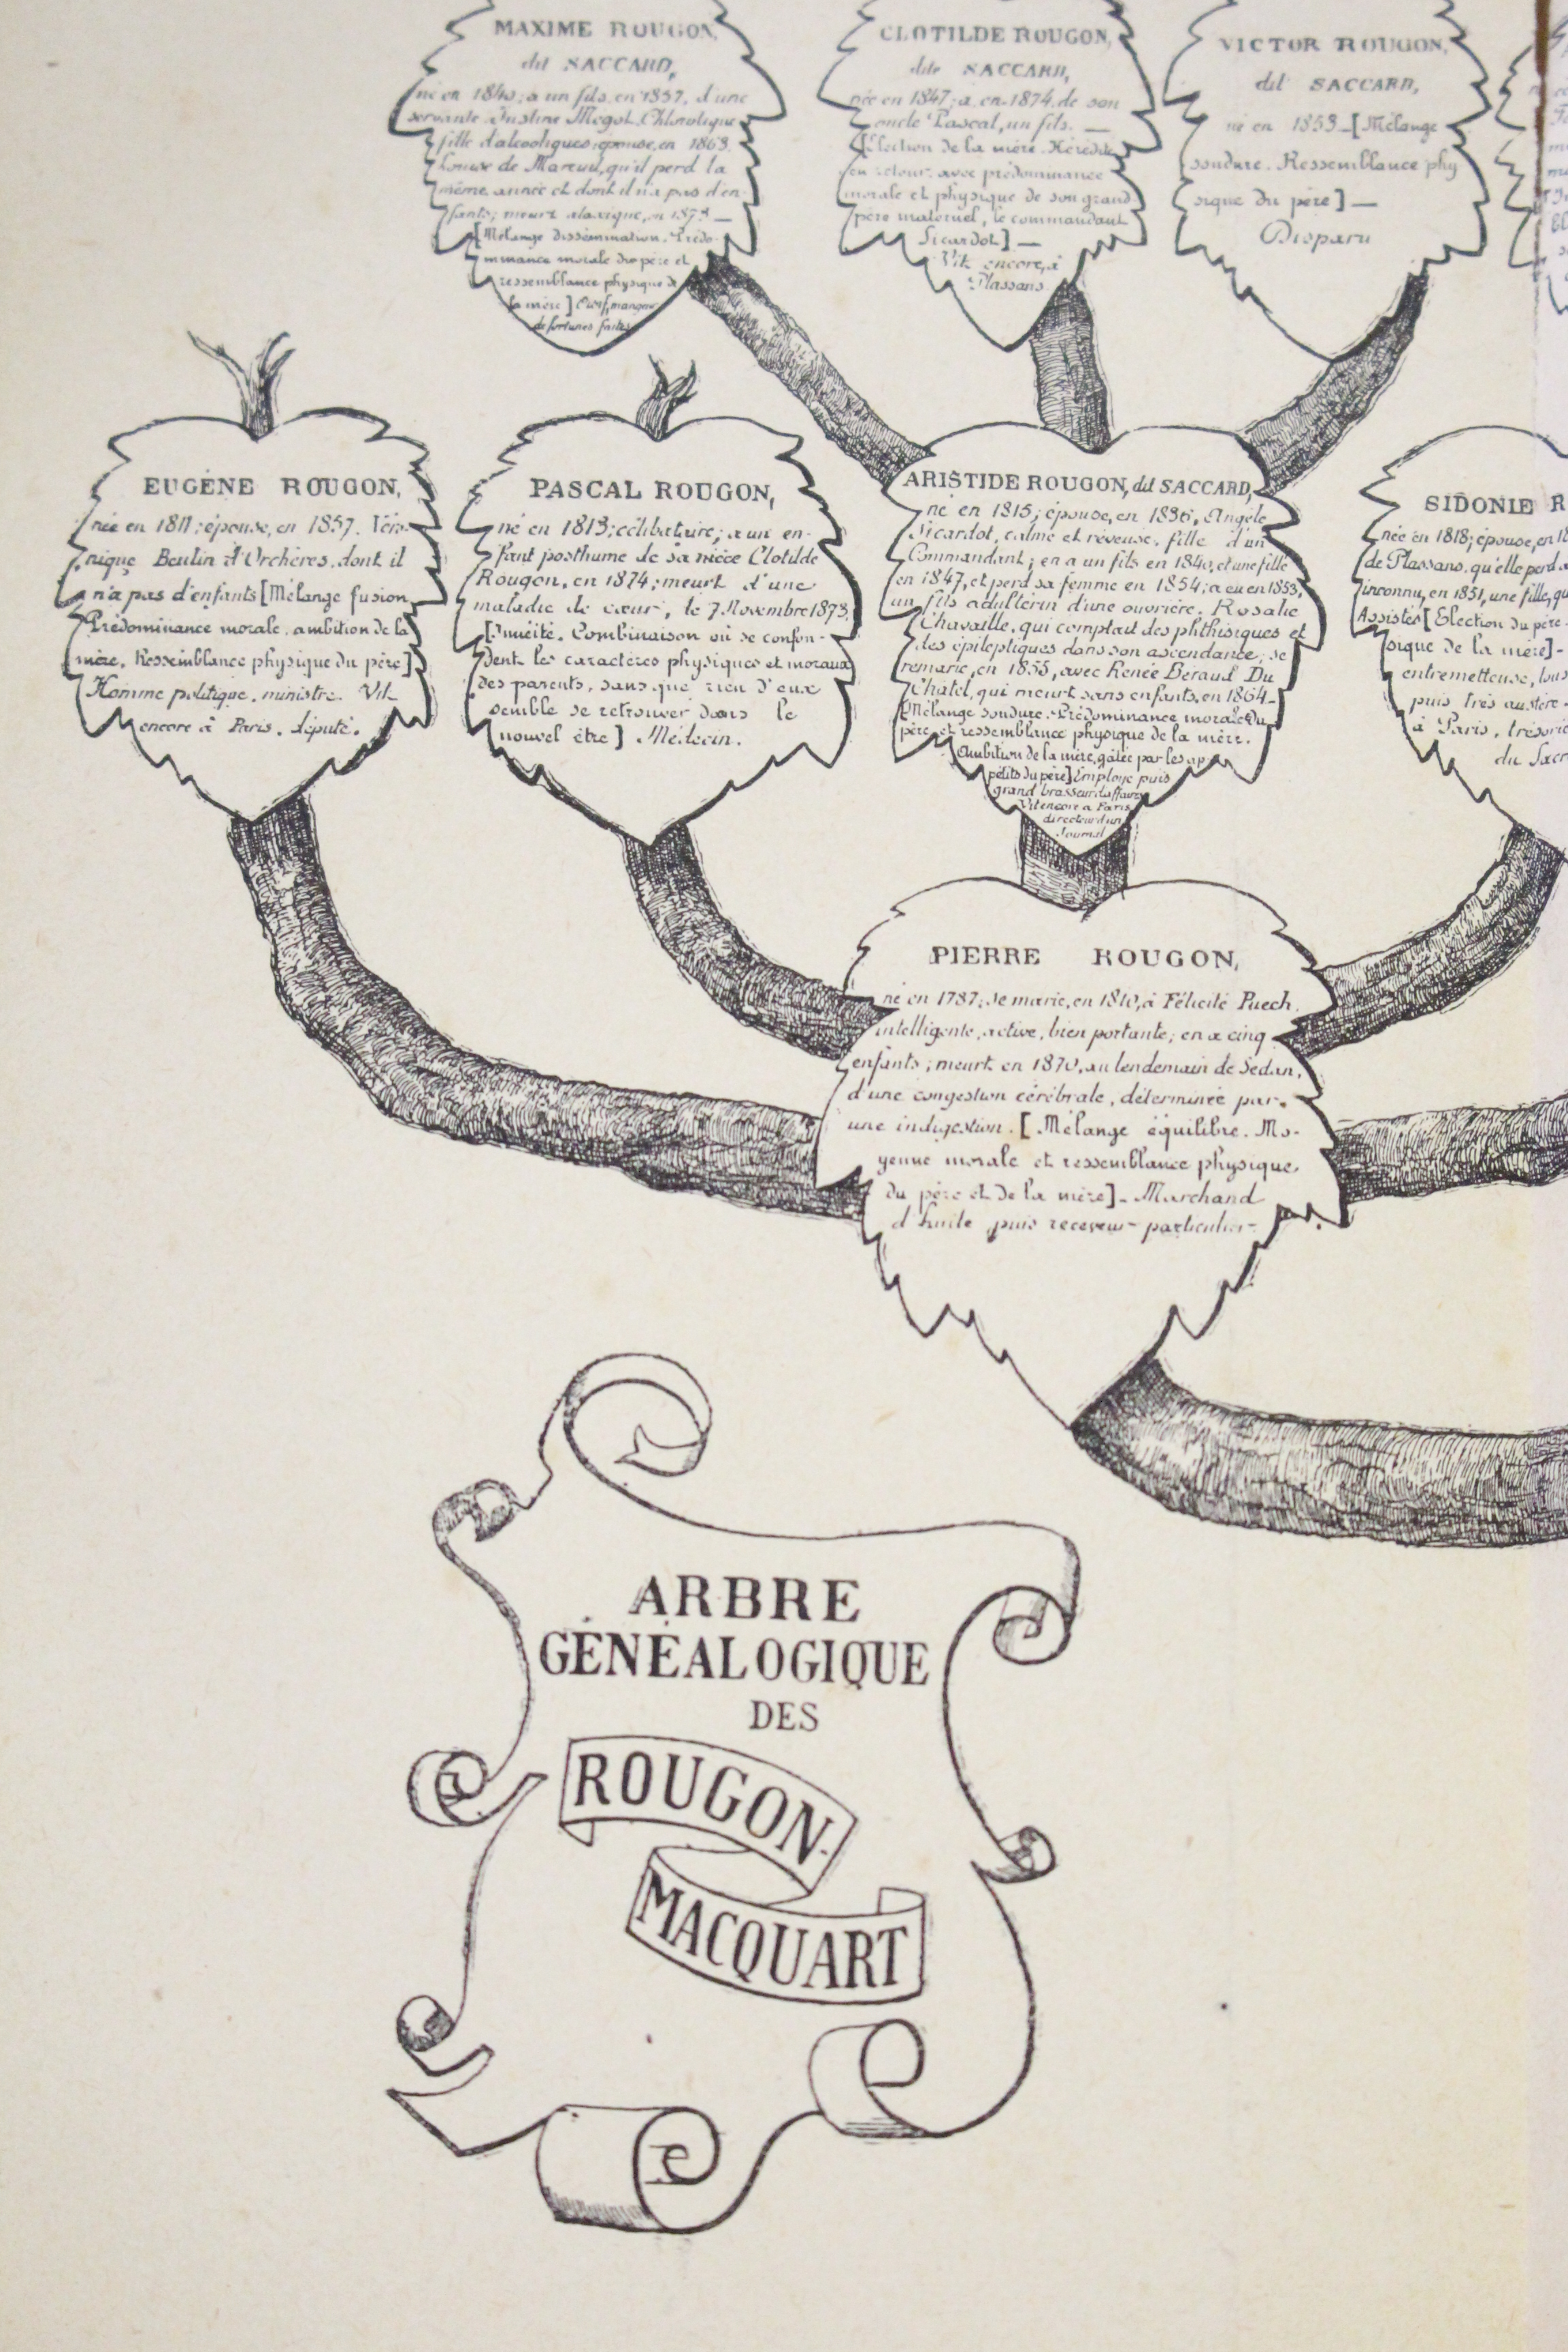 MAXIME ROUGON,
dit SACCARD,
né en 1840; a un fils, en 1857, d'une
servante Justine Megot, Chlorotique
fille d'alcooliques; épouse, en 1863,
Louise de Mareuil, qu'il perd la
même année et dont il n'a pas d'en-
fants; meurt ataxique, en 1873 —
[Mélange dissémination. Prédo-
minance morale du père et
ressemblance physique de
la mère] Oisif, mangeur
de fortunes faites
CLOTILDE ROUGON,
dite SACCARD,
née en 1847; a, en 1874, de son
oncle Pascal, un fils. —
[Élection de la mère. Hérédité
en retour avec prédominance
morale et physique de son grand
père maternel, le commandant
Sicardot] —
Vit encore, à
Plassans
VICTOR ROUGON,
dit SACCARD,
né en 1853 _ [Mélange
soudure. Ressemblance phy
sique du père] —
Disparu
EUGÈNE ROUGON,
née en 1811; épouse, en 1857, Véro-
nique Beulin d'Orchères, dont il
n'a pas d'enfants [Mélange fusion,
Prédominance morale, ambition de la
mère, Ressemblance physique du père]
Homme politique, ministre. Vit
encore à Paris. député.
PASCAL ROUGON,
né en 1813; célibataire; a un en-
fant posthume de sa nièce Clotilde
Rougon, en 1874; meurt d'une
maladie de cœur, le 7 Novembre 1873.
[Innéité. Combinaison où se confon-
dent les caractères physiques et moraux
des parents, sans que rien d'eux
semble se retrouver dans le
nouvel être] Médecin.
ARISTIDE ROUGON, dit SACCARD,
né en 1815; épouse, en 1836, Angèle
Sicardot, calme et rêveuse, fille d'un
Commandant; en a un fils en 1840, et une fille
en 1847, et perd sa femme en 1854; a eu en 1853,
un fils adultérin d'une ouvrière, Rosalie
Chavaille, qui comptait des phthisiques et
des épileptiques dans son ascendance; se
remarie, en 1855, avec Renée Béraud Du
Châtel, qui meurt sans enfants, en 1864 _
[Mélange soudure. Prédominance morale du
père et ressemblance physique de la mère.
Ambition de la mère, gâtée par les ap
pétits du père] Employé puis
grand brasseur d'affaires
Vit encore à Paris
directeur d'un
Journal
SIDONIE R
née en 1818; épouse, en 18
de Plassans, qu'elle perd a
inconnu, en 1851, une fille, qu
Assistés [Élection du père.
sique de la mère] -
entremetteuse, tous
puis très austère.
à Paris, trésoriè
du Sacr
PIERRE ROUGON,
né en 1787; se marie, en 1810, à Félicité Puech
intelligente, active, bien portante; en a cinq
enfants; meurt en 1870, au lendemain de Sedan,
d'une congestion cérébrale, déterminée par
une indigestion. [Mélange équilibre. Mo-
yenne morale et ressemblance physique
du père et de la mère] - Marchand
d'huile puis receveur - particulier -
ARBRE
GÉNÉALOGIQUE
DES
ROUGON-
MACQUART